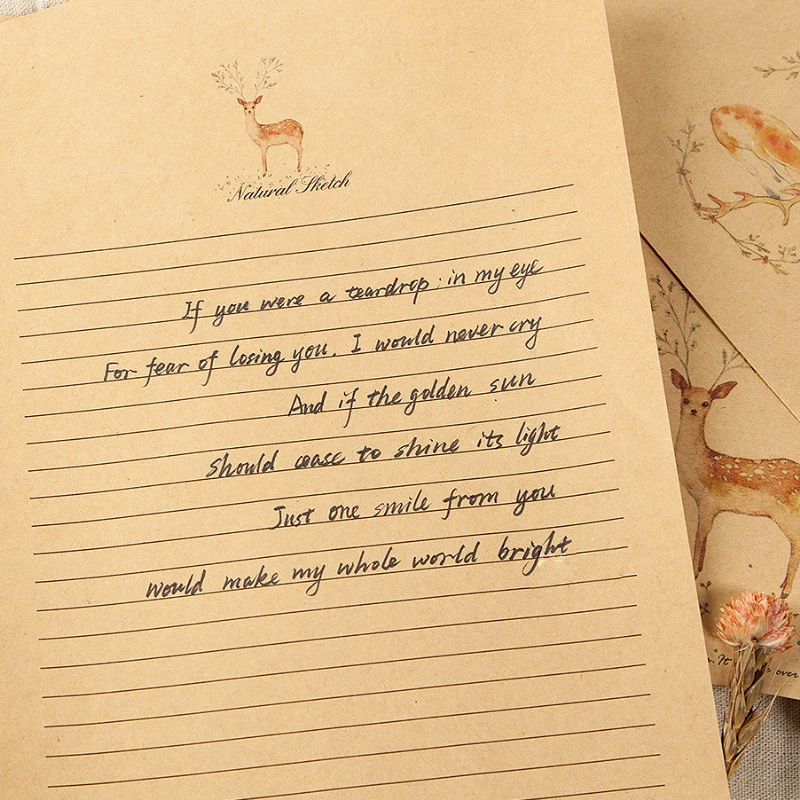 Natural Sketch
If you were a teardrop in my eye
For fear of losing you, I would never cry
And if the golden sun
Should cease to shine its light
Just one smile from you
would make my whole world bright
It
over